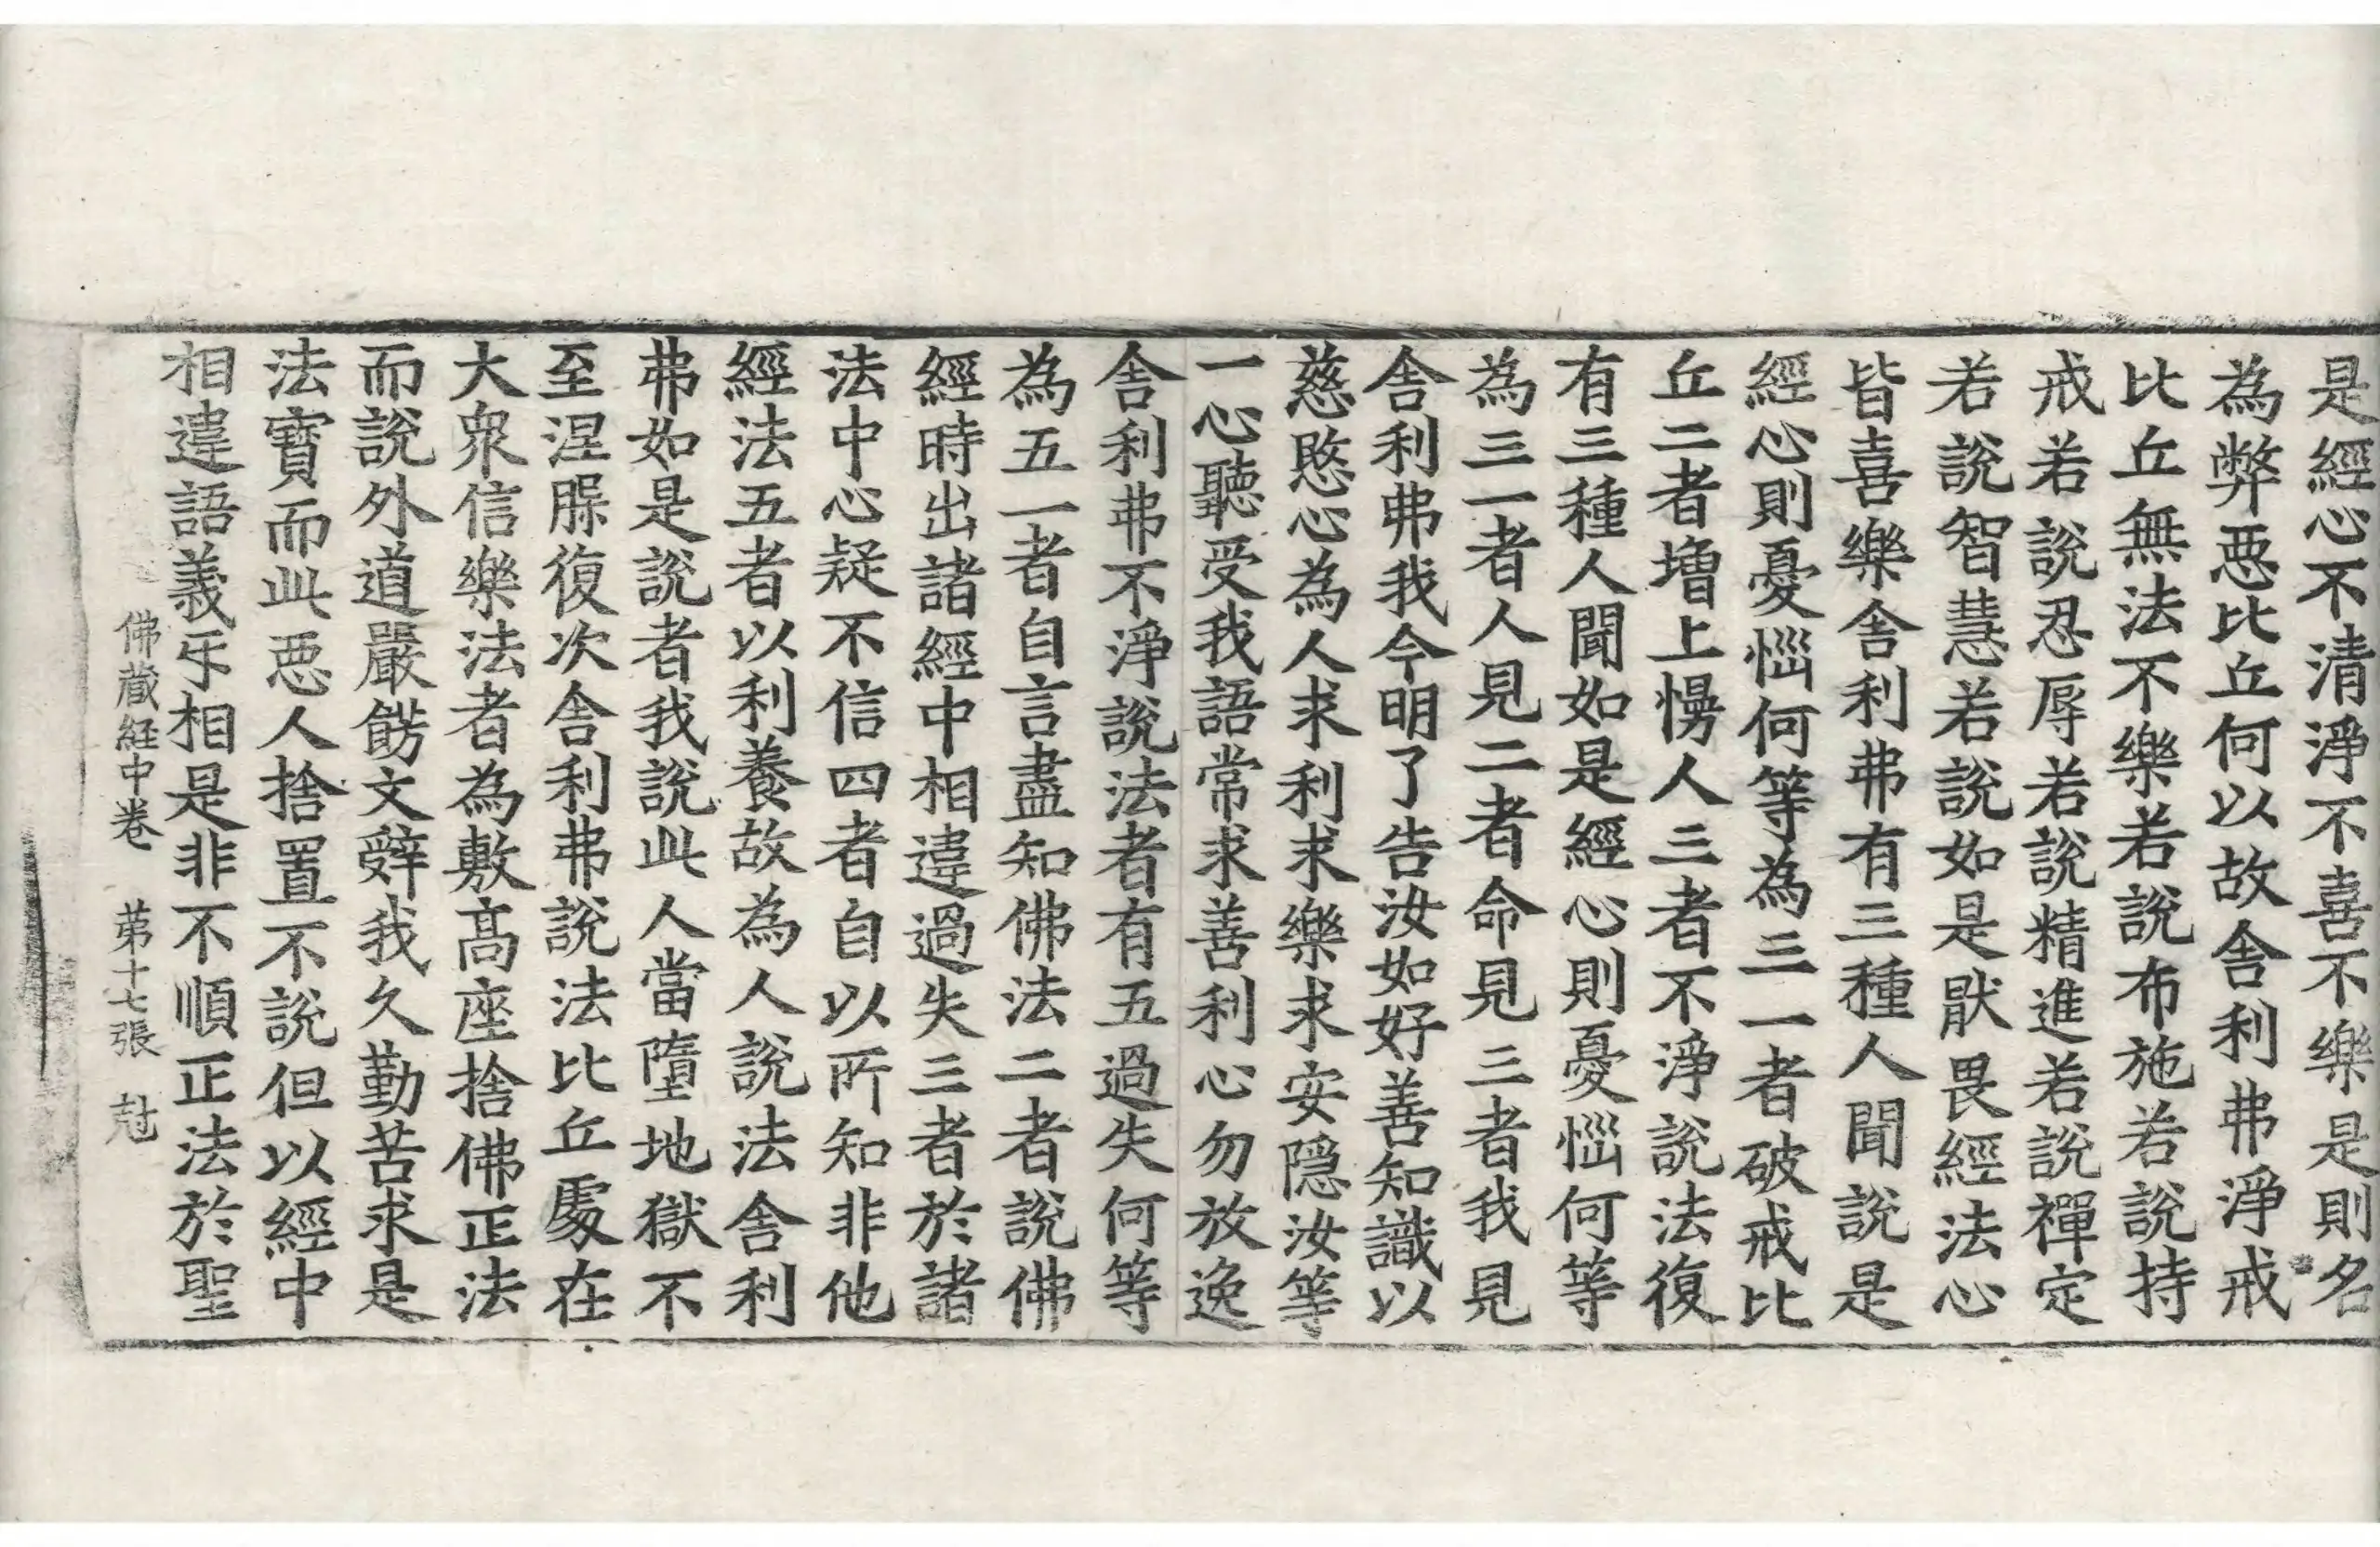 是經心不清淨不喜不樂是則名
為弊惡比丘何以故舍利弗淨戒
比丘無法不樂若說布施若說持
戒若說忍辱若說精進若說禪定
若說智慧若說如是猒畏經法心
皆喜樂舍利弗有三種人聞說是
經心則憂惱何等為三一者破戒比
丘二者增上慢人三者不淨說法復
有三種人聞如是經心則憂惱何等
為三一者人見二者命見三者我見
舍利弗我今明了告汝如好善知識以
慈愍心為人求利求樂求安隱汝等
一心聽受我語常求善利心勿放逸
舍利弗不淨說法者有五過失何等
為五一者自言盡知佛法二者說佛
經時出諸經中相違過失三者於諸
法中心疑不信四者自以所知非他
經法五者以利養故為人說法舍利
弗如是說者我說此人當墮地獄不
至涅槃復次舍利弗說法比丘處在
大衆信樂法者為敷髙座捨佛正法
而說外道嚴餝文辭我久勤苦求是
法寶而此惡人捨置不說但以經中
相違語義互相是非不順正法於聖
佛藏経中卷 苐十七張 尅